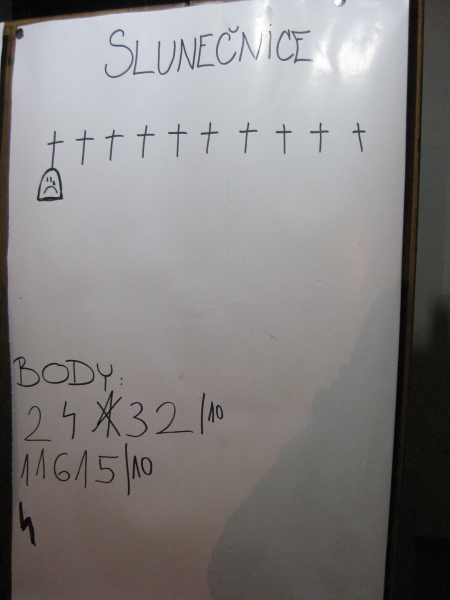 SLUNEČNICE
BODY:
24 32/10
11615/10